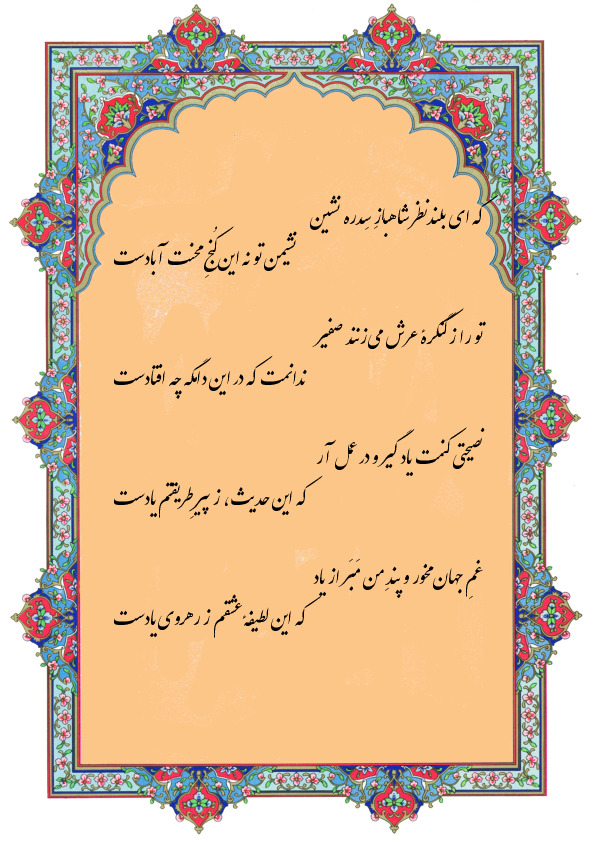 که ای بلندنظر شاهبازِ سِدره نشین
نشیمن تو نه این کُنجِ محنت آبادست
تو را ز کنگرهٔ عرش می‌زنند صفیر
ندانمت که در این دامگه چه افتادست
نصیحتی کنمت یاد گیر و در عمل آر
که این حدیث، ز پیرِ طریقتم یادست
غمِ جهان مخور و پندِ من مَبَر از یاد
که این لطیفهٔ عشقم ز رهروی یادست